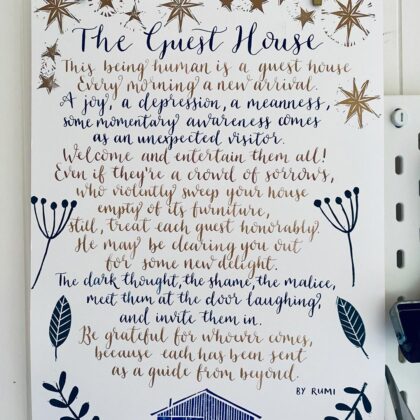 The Guest House
This being human is a guest house
Every morning a new arrival.
A joy, a depression, a meanness,
some momentary awareness comes
as an unexpected visitor.
Welcome and entertain them all!
Even if they're a crowd of sorrows,
who violently sweep your house
empty of its furniture,
still, treat each guest honorably.
He may be clearing you out
for some new delight.
The dark thought, the shame, the malice,
meet them at the door laughing,
and invite them in.
Be grateful for whoever comes,
because each has been sent
as a guide from beyond.
BY RUMI